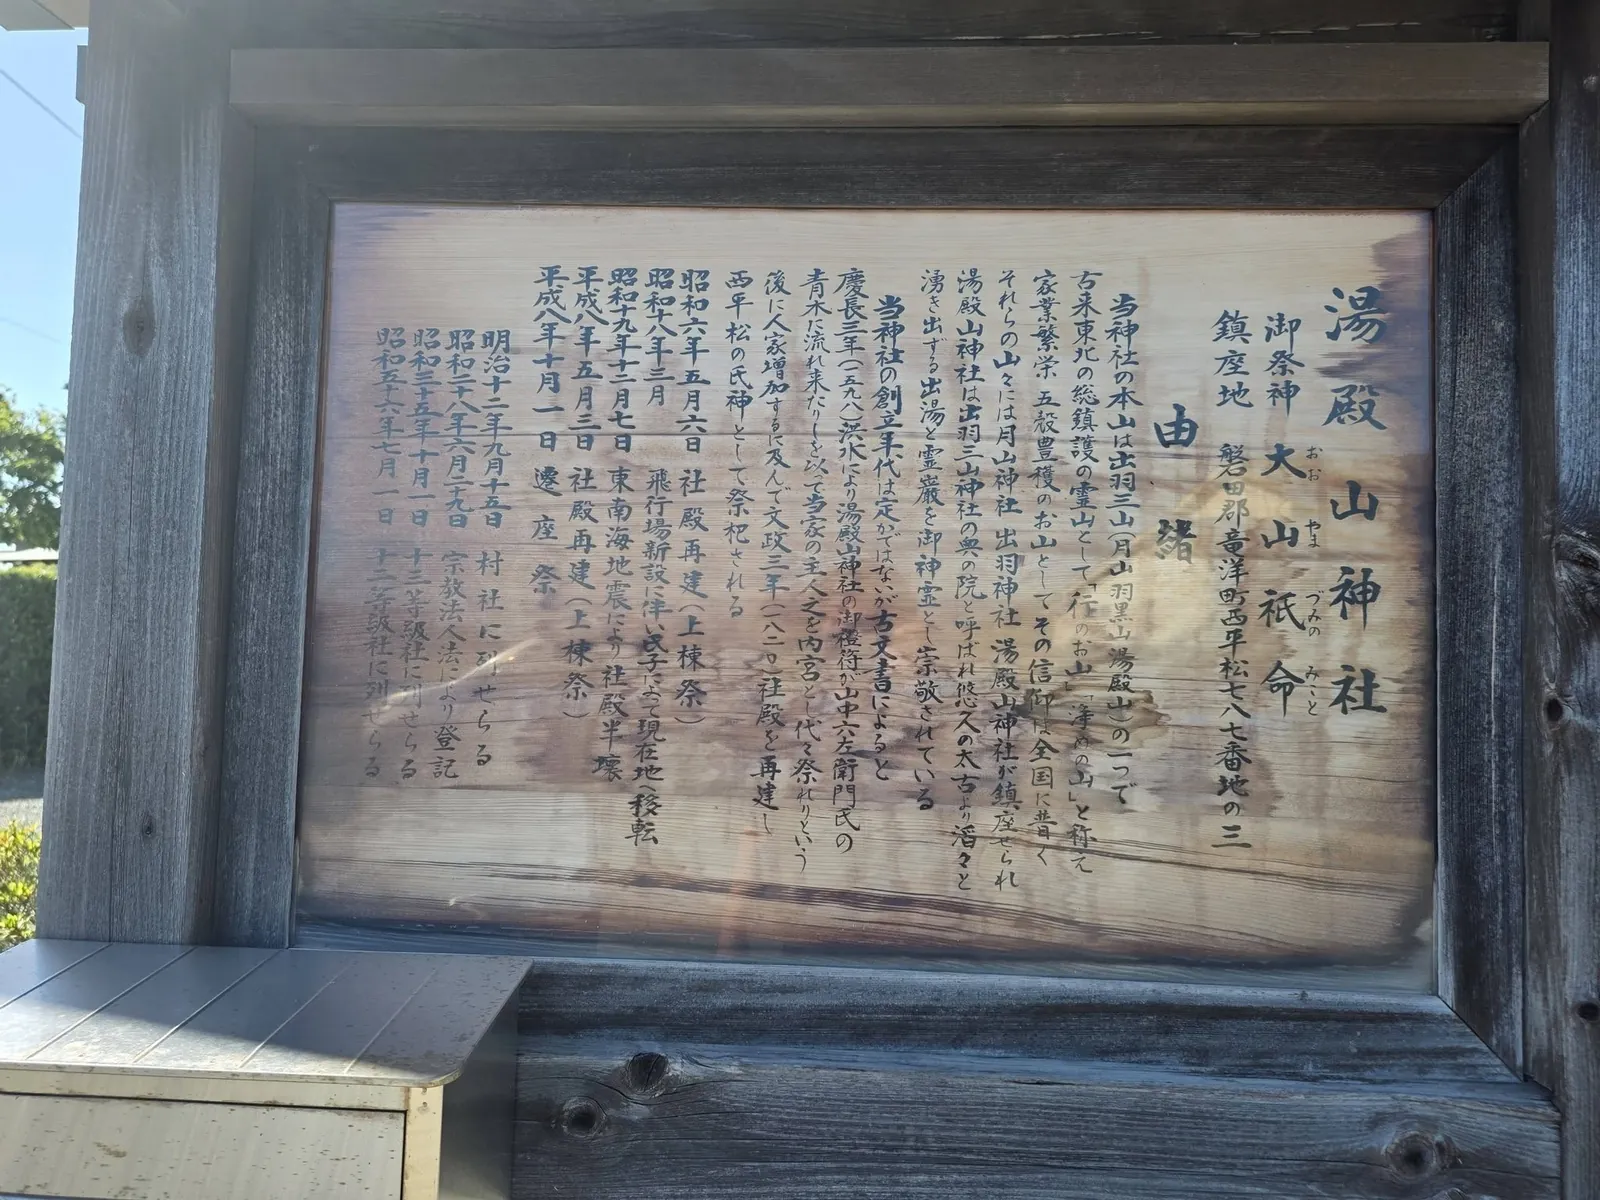 湯殿山神社
御祭神 大山祇命
おお やま づみの みこと
鎮座地 磐田郡竜洋町西平松七八七番地の三
由緒
当神社の本山は出羽三山(月山 羽黒山 湯殿山)の一つで
古来東北の総鎮護の霊山として「行のお山」「浄めの山」と称え
家業繁栄 五穀豊穫のお山としてその信仰は全国に普く
それらの山々には月山神社 出羽神社 湯殿山神社が鎮座せられ
湯殿山神社は出羽三山神社の奥の院と呼ばれ悠久の太古より滔々と
湧き出ずる出湯と霊巌を御神霊とし崇敬されている
当神社の創立年代は定かではないが古文書によると
慶長三年(一五九八)洪水により湯殿山神社の御璽符が山中六左衛門氏の
青木に流れ来たりしを以て当家の主人之を内宮とし代々祭れりという
後に人家増加するに及んで文政三年(一八二〇)社殿を再建し
西平松の氏神として祭祀される
昭和六年五月六日 社殿再建(上棟祭)
昭和十八年三月 飛行場新設に伴い氏子によって現在地へ移転
昭和十九年十二月七日 東南海地震により社殿半壊
平成八年五月三日 社殿再建(上棟祭)
平成八年十月一日 遷座祭
明治十二年九月十五日 村社に列せらる
昭和二十八年六月二十九日 宗教法人法により登記
昭和三十五年十月一日 十三等級社に列せらる
昭和五十六年七月一日 十二等級社に列せらる